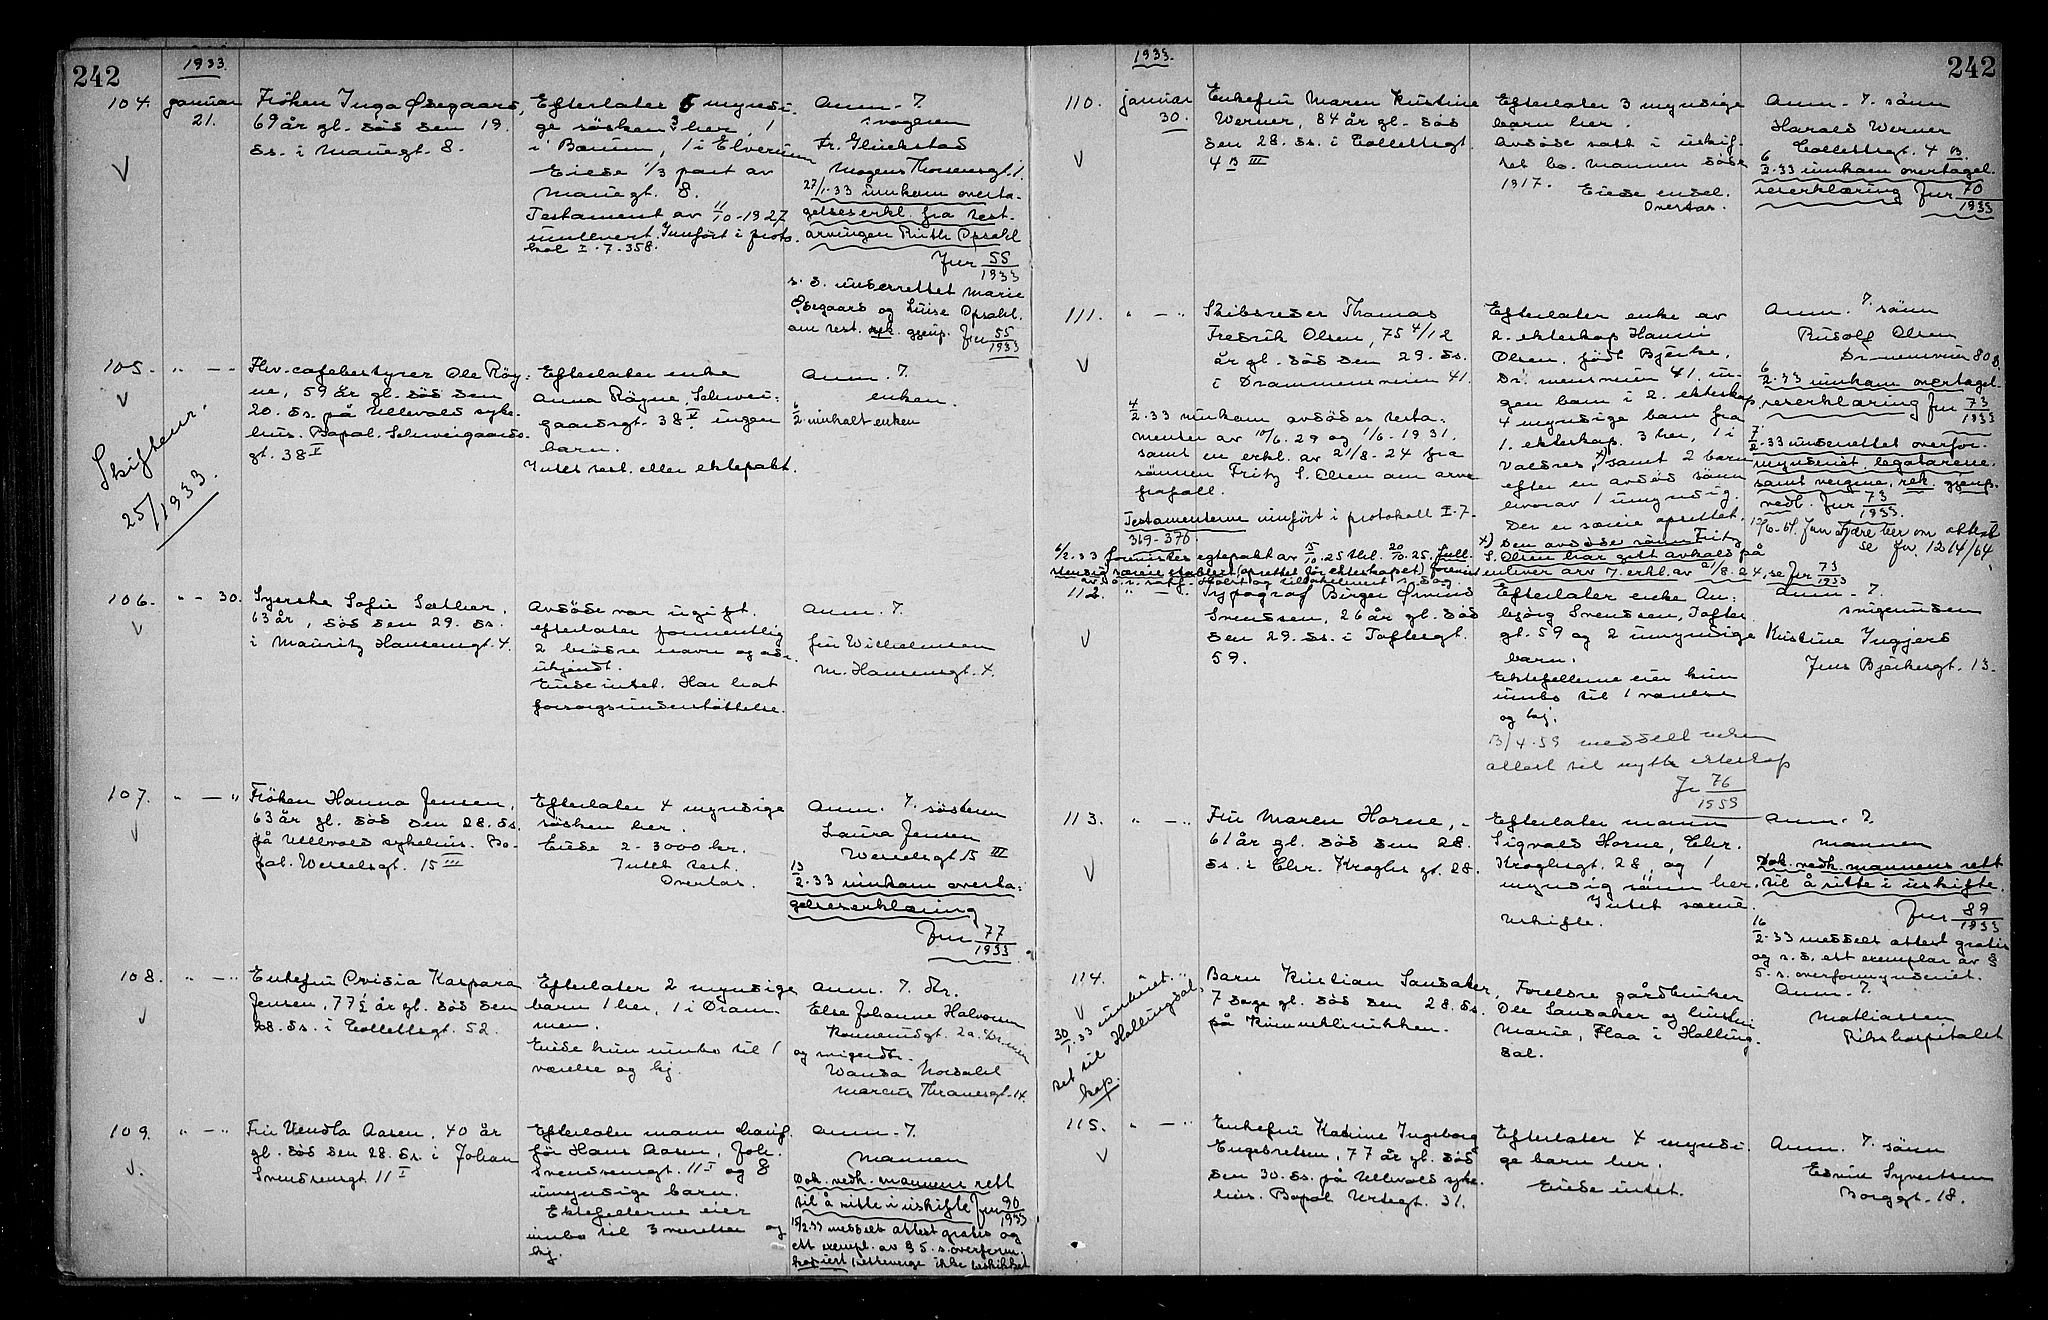 242
1933.
104.
januar
21.
Frøken Inga Ødegaard,
69 år gl. död den 19.
ds. i Mariegt. 8.
Efterlater 5 myndi-
ge søsken 3 her, 1
i Bærum, 1 i Elverum
Eiede 1/3 part av
Mariegt. 8.
Testament av 11/10-1927
innlevert. Innført i proto-
kol I. 7. 358.
Anm. 7.
Fr. Glückstad
Mogens Thorsensgt. 1.
27/1-33 innkom overta-
gelseserkl. fra test.
arvingen Ruth Opsahl
Jnr 55/1933
s. d. underrettet Marie
Ødegaard og Luise Opsahl.
om test. rek. gjenp. Jnr 55/1933
105.
" — "
Fhv. cafebestyrer Ole Röy-
ne, 59 år gl. död den
20. ds. på Ullevold syke-
hus. Bopal. Schweigaards-
gt. 38 V
Efterlater enke
Anna Röyne, Schwei-
gaardsgt. 38 V ingen
barn.
Intet test. eller ektepakt.
Anm. 7.
enken.
6/2 innkalt enken
Skifteur.
25/1933.
106.
" — 30.
Syerske Sofie Sæther,
63 år, död den 29. ds.
i Mauritz Hansensgt. 4.
Avdöde var ugift.
efterlater formentlig
2 brödre navn og adr.
ukjendt.
Eiede intet. Har hat
forsorgsunderstöttelse.
Anm. 7.
fru Wilhelmsen
M. Hansensgt. 4.
107.
" — "
Fröken Hanna Jensen,
63 år gl. död den 28. ds.
på Ullevold sykehus. Bo-
pal. Wesselsgt. 15 III
Efterlater 4 myndige
søsken her.
Eiede 2-3000 kr.
Intet test.
Overtar.
Anm. 7. søsteren
Laura Jensen
Wesselsgt. 15 III
13/2-33 innkom overta-
gelseserklæring
Jnr 77/1933
108.
" — "
Enkefru Ovidia Kaspara
Jensen, 77 1/2 år gl. død den
28. ds. i Collettsgt. 52.
Efterlater 2 myndige
barn 1 her, 1 i Dram-
men.
Eiede kun innbo til 1
værelse og kj.
Anm. 7. dtr.
Else Johanne Halvorsen
og svigerdtr.
Wanda Nordahl
Marcus Thranesgt. 14.
109.
" — "
Fru Vendla Aasen, 40 år
gl. död den 28. ds. i Johan
Svendsensgt 11 I
Efterlater mann chauf-
för Hans Aasen, Joh.
Svendsensgt. 11 I og 8
umyndige barn.
Ektefellerne eier
innbo til 3 værelser og
kj.
Anm. 7.
Mannen
Dok. vedk. mannens rett
til å sitte i uskifte Jnr 90/1933
15/2-33 meddelt attest gratis og
ett exempl. av § 5. s. overform.
setteverge ikke beskikket
242
1933.
110.
januar
30.
Enkefru Maren Kristine
Werner, 84 år gl. död
den 28. ds. i Collettsgt.
4 B III
Efterlater 3 myndige
barn her.
Avdöde satt i uskif-
tet bo. Mannen döde
1917. Eiede endel.
Overtar.
Anm. 7. sönn
Harald Werner
Collettsgt. 4 B.
6/2-33 innkom overtagel-
seserklæring Jnr 70/1933
111.
" — "
Skibsreder Thomas
Fredrik Olsen, 75 4/12
år gl. död den 29. ds.
i Drammensveien 41.
4/2-33 innkom avdödes testa-
menter av 10/6-29 og 1/6-1931.
samt en erkl. av 21/8-24 fra
sönnen Fritz S. Olsen om arve
frafall.
Testamenterne innfört i protokoll I-7-
369-370.
6/2-33 fremvistes egtepakt av 15/10.25 tbl. 20/10-25. full-
stendig særeie etablert (oprettet för ekteskapet)
Efterlater enke av
2. ekteskap Hanni
Olsen, född Bjerke,
Dr. mensveien 41. in-
gen barn i 2. ekteskap
4 myndige barn fra
1. ekteskap. 3 her, 1 i
Valdres, x) samt 2 barn
efter en avdöd sönn
hvorav 1 umyndig.
Der er særeie oprettet.
x) Den avdödes sönn Fritz
S. Olsen har gitt avkald på
enhver arv 7. erkl. av 21/8-24, se Jnr 73/1933
Anm. 7. sönn
Rudolf Olsen
Dr. mensveien 80 B.
6/2-33 innkom overtagel-
seserklæring Jnr 73/1933
7/2-33 underrettet overfor-
mynderiet, legatarene,
samt vergene, rek. gjenp.
vedl. Jnr 73/1933.
se Jnr. 1214/64.
112.
" — "
Typograf Birger Ørnulf
Svendsen, 26 år gl. död
den 29. ds. i Toftesgt.
59.
Efterlater enke An-
björg Svendsen, Toftes
gt. 59 og 2 umyndige
barn.
Ektefellerne eier kun
innbo til 1 værelse
og kj.
13/4-59 meddelt enken
attest til nytt ekteskap
Jr 76/1959
Anm. 7.
svigerinden
Kristine Ingjerd
Jens Bjelkesgt. 13.
113.
" — "
Fru Maren Horne,
61 år gl. död den 28.
ds. i Chr. Kroghs gt. 28.
Efterlater mann
Sigvald Horne, Chr.
Kroghsgt. 28, og 1
myndig sönn her.
Intet særeie.
Uskifte.
Anm. 7.
mannen
Dok. vedk. mannens rett
til å sitte i uskifte.
Jnr 89/1933
16/2-33 meddelt attest gratis
og s. d. ett exemplar av §
5. s. overformynderiet.
114.
" — "
30/1-33 underret-
tet til Hallingdal.
Barn Kristian Sandaker,
7 dage gl. död den 28. ds.
på Kvinneklinikken.
Foreldre gårdbruker
Ole Sandaker og hustru
Marie, Flaa i Halling-
dal.
Anm. 7.
Mathiassen
Rikshospitalet
115.
" — "
Enkefru Katrine Ingeborg
Engebretsen, 77 år gl. död
den 30. ds. på Ullevold syke-
hus. Bopal Urtegt. 31.
Efterlater 4 myndi-
ge barn her.
Eiede intet.
Anm. 7. sönn
Edvin Syvertsen
Borggt. 18.